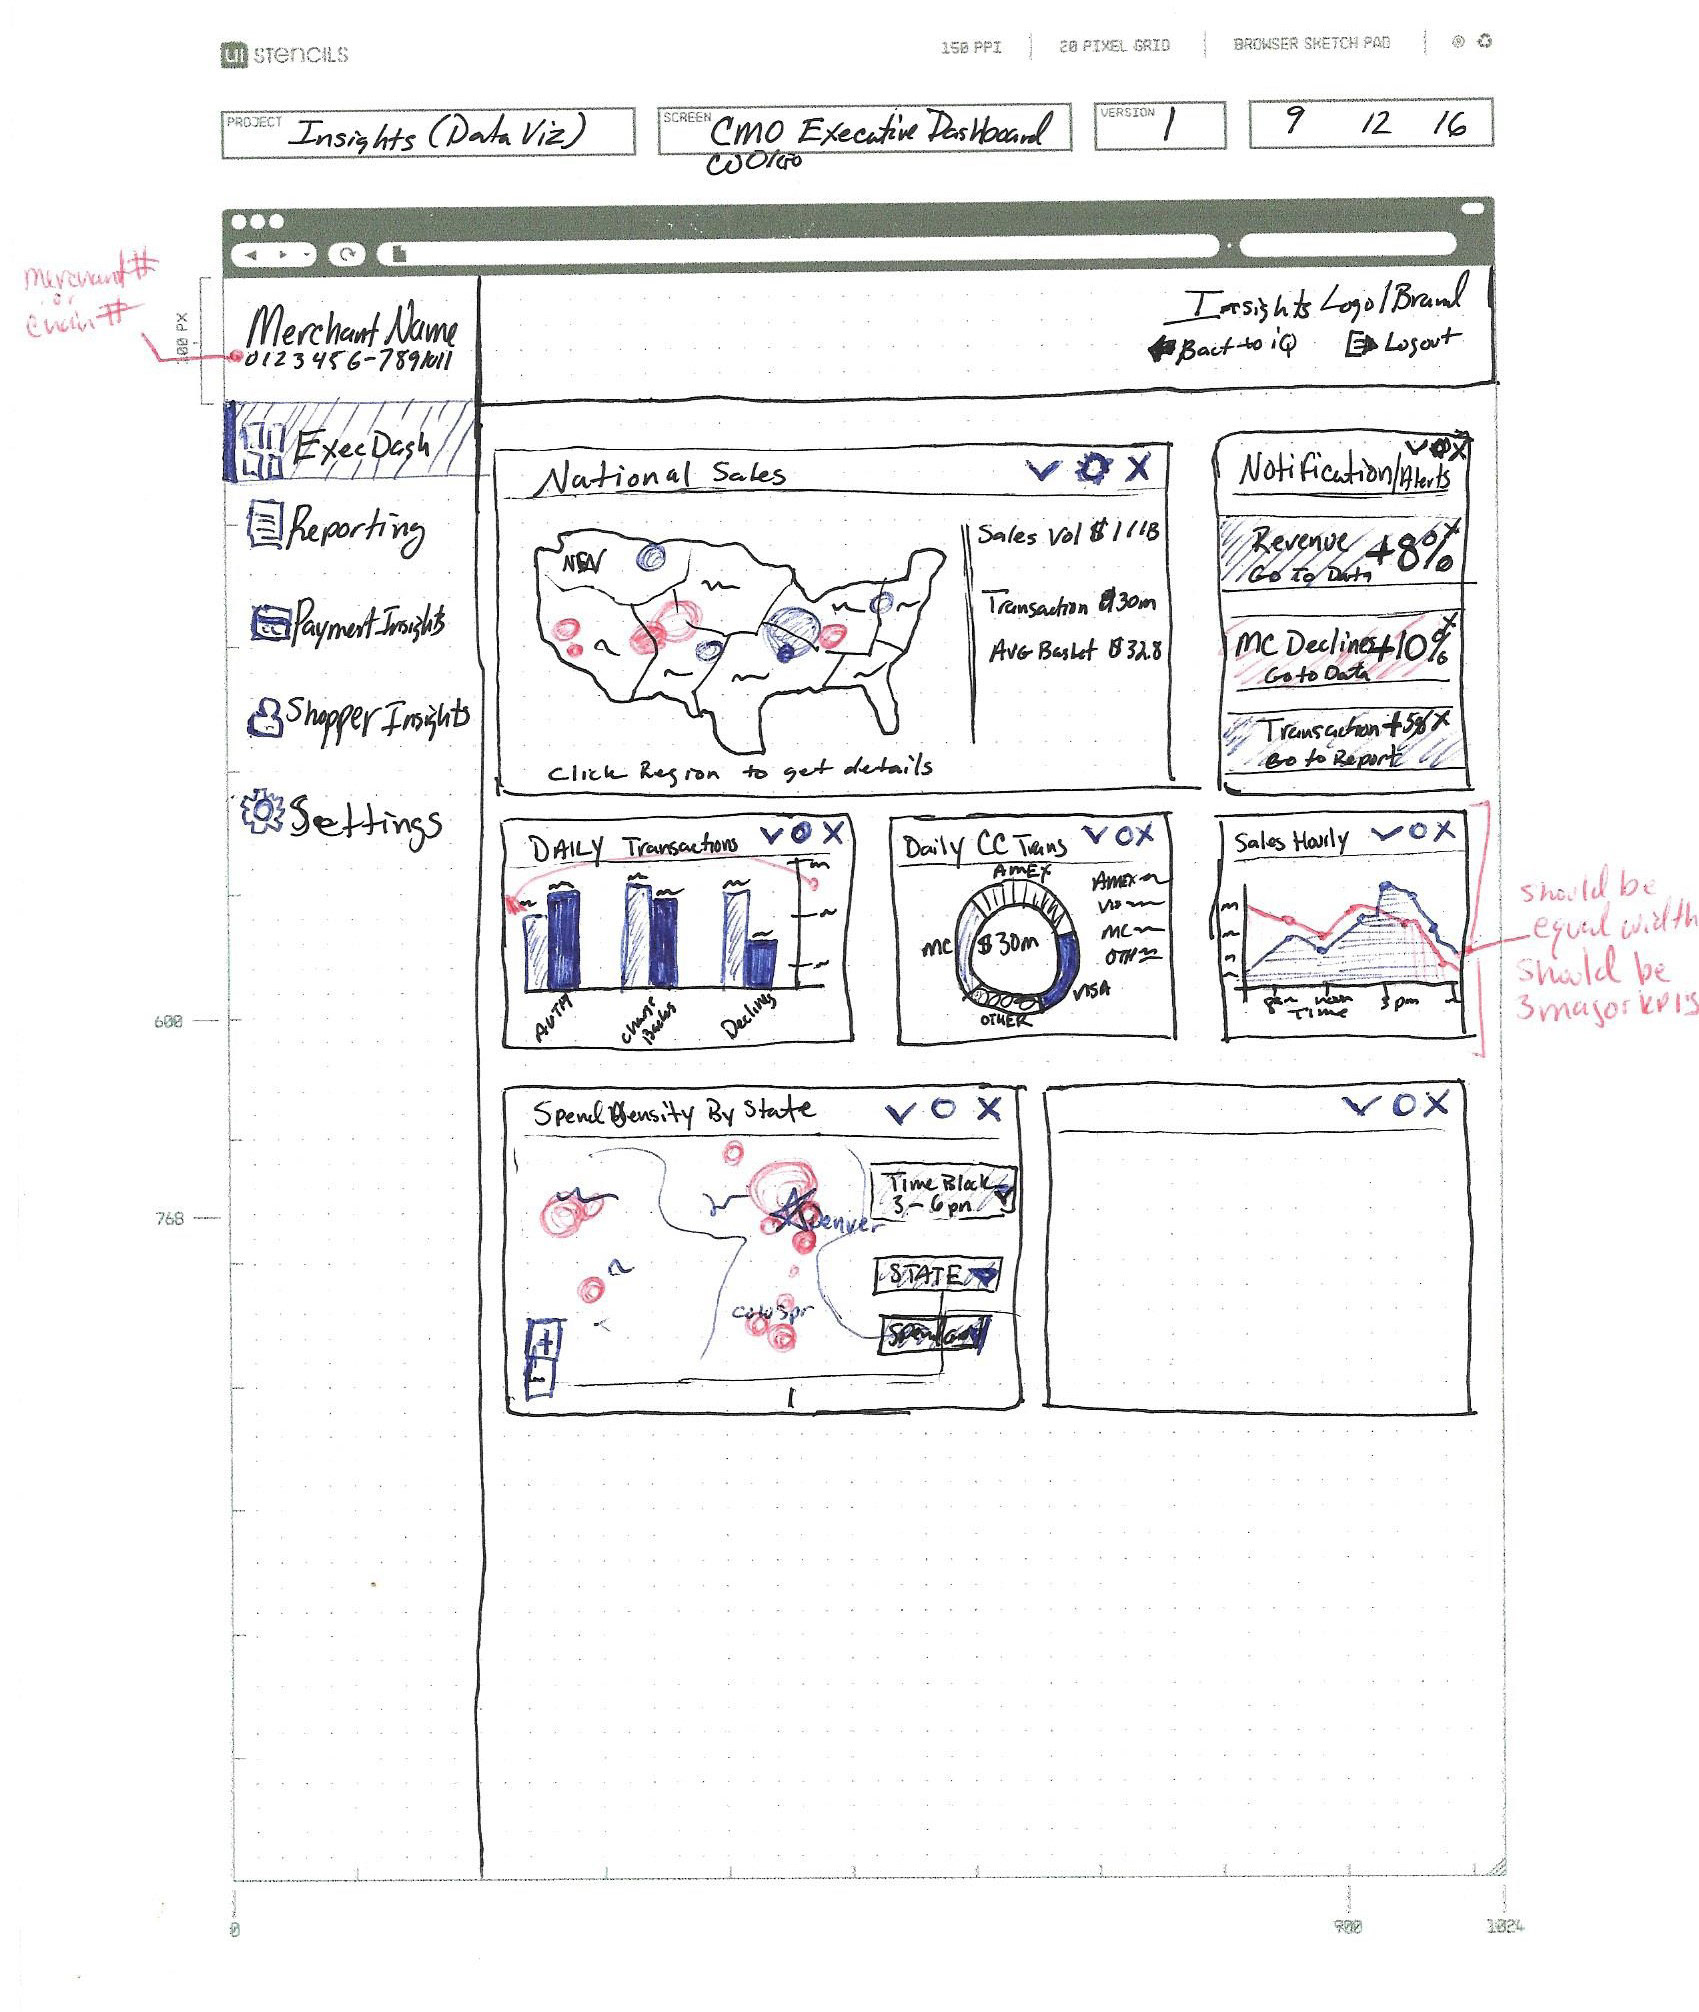 UI STENCILS
150 PPI
20 PIXEL GRID
BROWSER SKETCH PAD
PROJECT Insights (Data Viz)
SCREEN CMO Executive Dashboard
VERSION 1
9 12 16
merchant #
or
chain #
100 PX
Merchant Name
0123456-7891011
Insights Logo/Brand
Back to iQ
Logout
ExecDash
Reporting
Payment Insights
Shopper Insights
Settings
National Sales
Sales Vol $ 1.11B
Transaction $30m
Avg Basket $328
Click Region to get details
Notification/Alerts
Revenue +8%
Go To Data
MC Declines +10%
Go to Data
Transaction +5%
Go to Report
DAILY Transactions
AUTH
Charge
Backs
Declines
Daily CC Trans
AMEX
MC
$30m
VISA
OTHER
AMEX
MC
OTH
Sales Hourly
noon
3pm
Time
should be
equal width
should be
3 major KPI's
600
768
Spend Density By State
Time Block
3-6pm
Denver
STATE
Colo Spr
+
-
0
900
1024